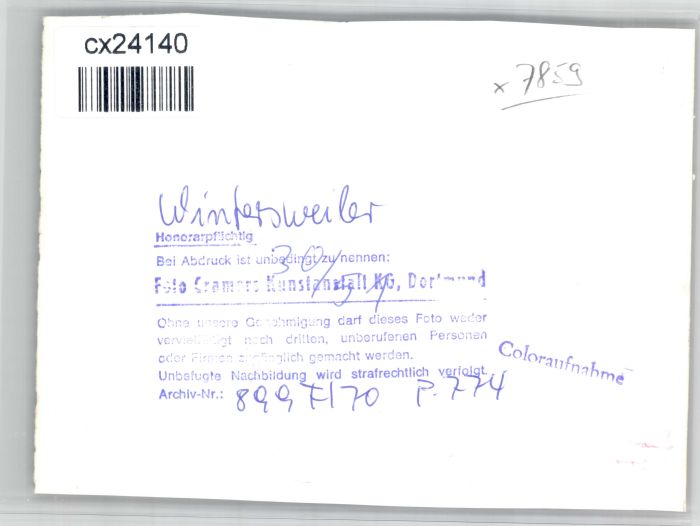 cx24140
x 7859
Wintersweiler
Honorarpflichtig
Bei Abdruck ist unbedingt zu nennen:
30/51
Foto Cramers Kunstanstalt KG, Dortmund
Ohne unsere Genehmigung darf dieses Foto weder
vervielfältigt noch dritten, unberufenen Personen
oder Firmen zugänglich gemacht werden.
Unbefugte Nachbildung wird strafrechtlich verfolgt.
Coloraufnahme
Archiv-Nr.: 899 7/70 P. 774